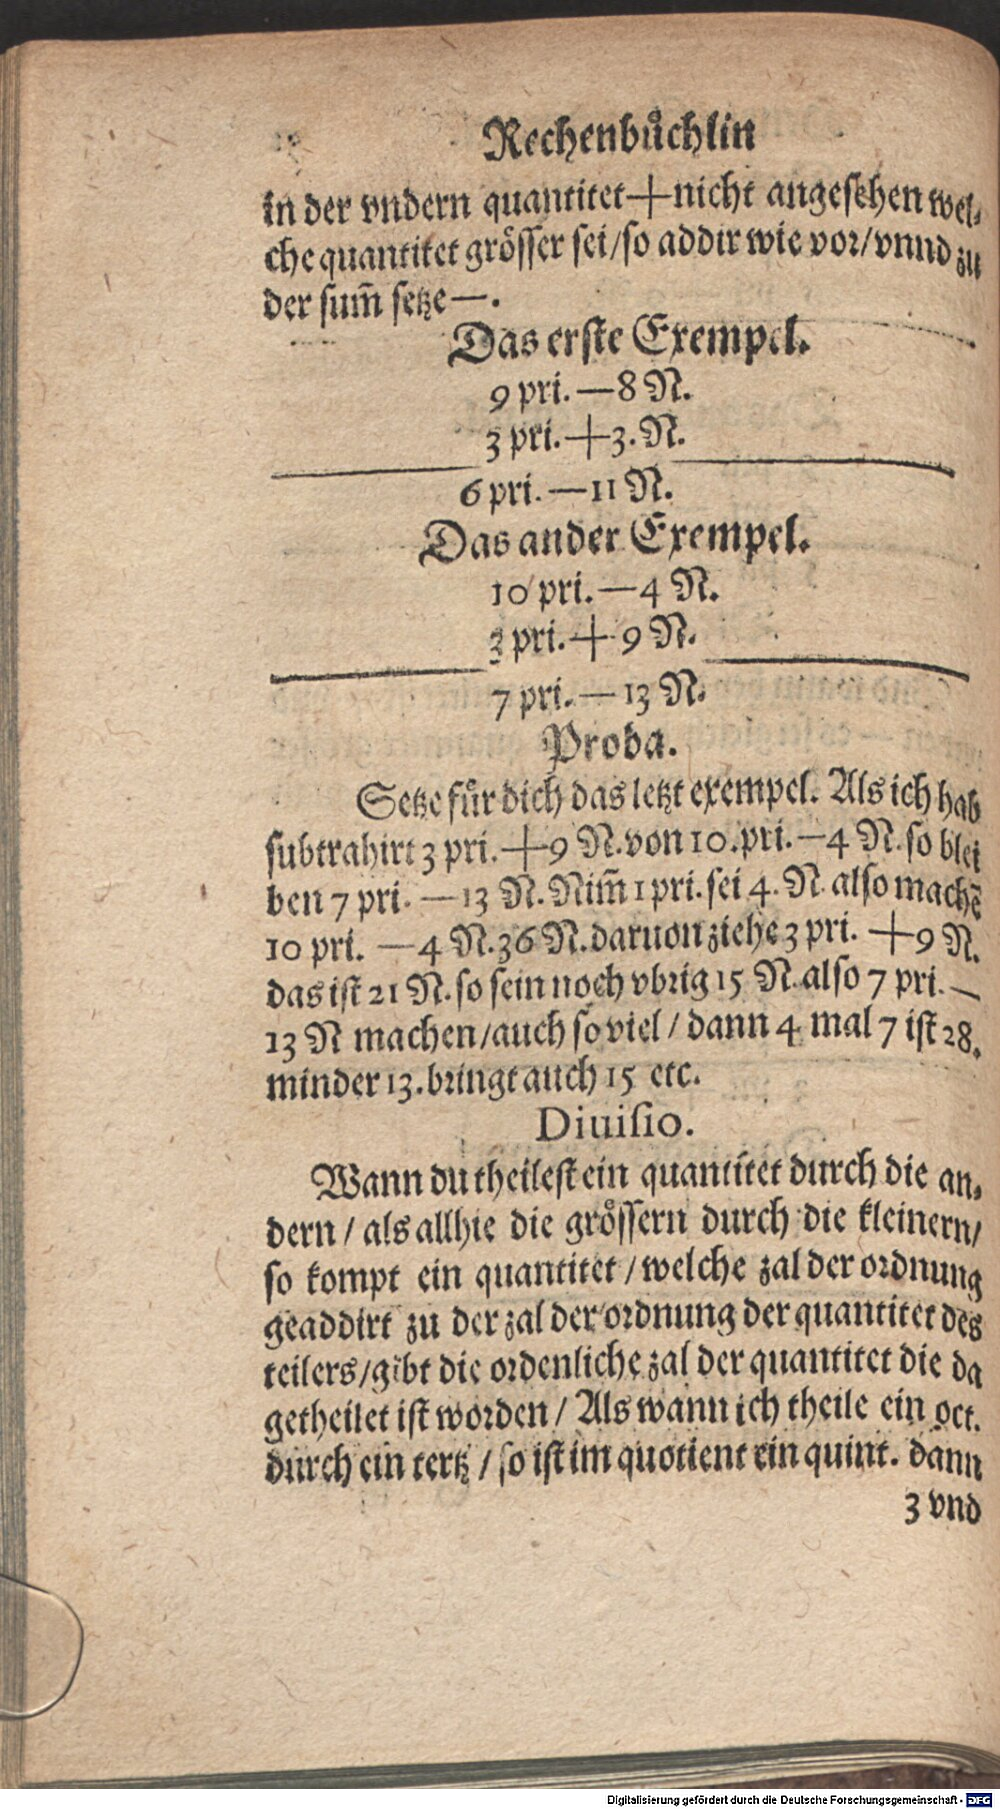 Rechenbuͤchlin
in der vndern quantitet + nicht angesehen wel-
che quantitet groͤsser sei / so addir wie vor / vnnd zu
der sum̄ setze —.
Das erste Exempel.
9 pri. — 8 N.
3 pri. + 3. N.
6 pri. — 11 N.
Das ander Exempel.
10 pri. — 4 N.
3 pri. + 9 N.
7 pri. — 13 N.
Proba.
Setze fuͤr dich das letzt exempel. Als ich hab
subtrahirt 3 pri. + 9 N. von 10. pri. — 4 N. so blei
ben 7 pri. — 13 N. Nim̄ 1 pri. sei 4. N. also machē
10 pri. — 4 N. 36 N. daruon ziehe 3 pri. + 9 N.
das ist 21 N. so sein noch vbrig 15 N. also 7 pri. —
13 N machen / auch so viel / dann 4 mal 7 ist 28.
minder 13. bringt auch 15 etc.
Diuisio.
Wann du theilest ein quantitet durch die an-
dern / als allhie die groͤssern durch die kleinern /
so kompt ein quantitet / welche zal der ordnung
geaddirt zu der zal der ordnung der quantitet des
teilers / gibt die ordenliche zal der quantitet die da
getheilet ist worden / Als wann ich theile ein oct.
durch ein tertz / so ist im quotient ein quint. dann
3 vnd
Digitalisierung gefördert durch die Deutsche Forschungsgemeinschaft - DFG